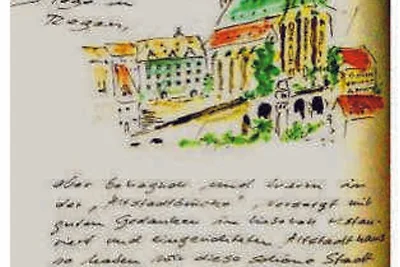 in
Regen,
aber behaglich und warm in
der „Altstadtbrücke", versorgt mit
guten Gedanken im liebevoll restau-
riert und eingerichteten Altstadthaus
so haben wir diese schöne Stadt